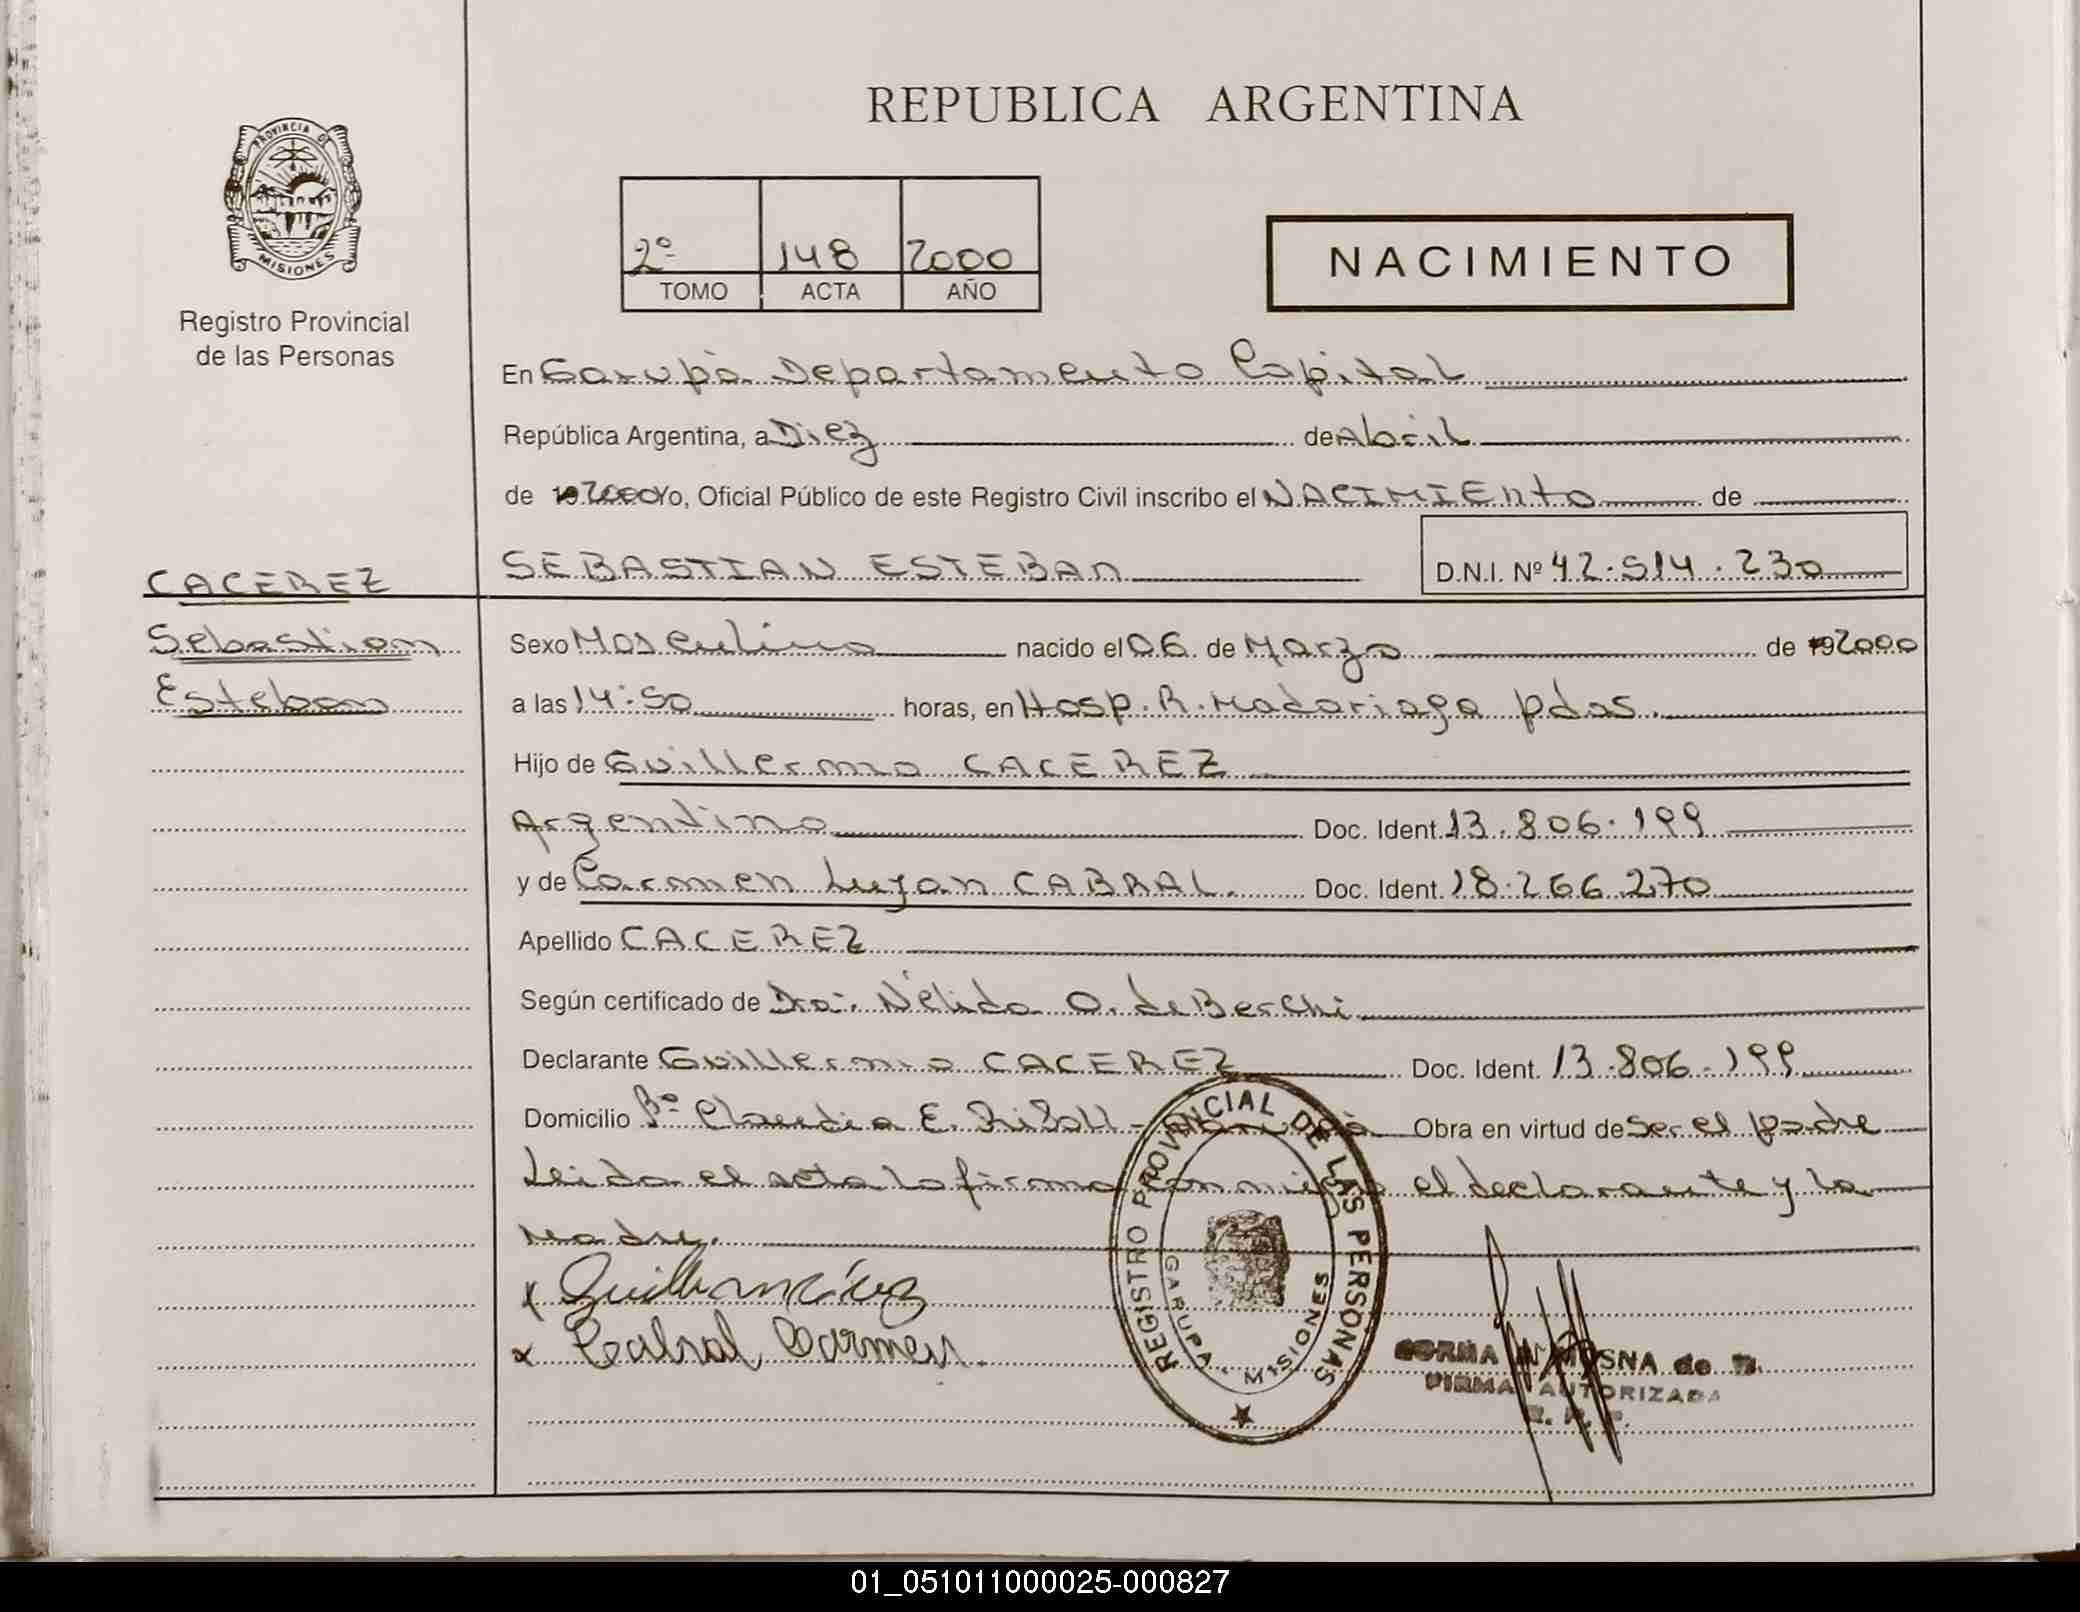 REPUBLICA ARGENTINA
PROVINCIA DE
MISIONES
Registro Provincial
de las Personas
2º 148 2000
TOMO ACTA AÑO
NACIMIENTO
En Garupá Departamento Capital
República Argentina, a Diez de Abril
de 19 2000 Yo, Oficial Público de este Registro Civil inscribo el NACIMIEnto de
CACEREZ
SEBASTIAN ESTEBAN D.N.I. Nº 42.514.230
Sebastian
Esteban
Sexo Masculino nacido el 06 de Marzo de 19 2000
a las 14:50 horas, en Hosp. R. Madariaga pdas.
Hijo de Guillermo CACEREZ
Argentino Doc. Ident. 13.806.199
y de Carmen Lujan CABRAL. Doc. Ident. 18.266.270
Apellido CACEREZ
Según certificado de Dra. Nélida O. de Berchi
Declarante Guillermo CACEREZ Doc. Ident. 13.806.199
Domicilio Bº Claudia E. Obra en virtud de Ser el padre
Leida el acta la firma conmigo el declarante y la
madre.
x
x Cabral Carmen
REGISTRO PROVINCIAL DE LAS PERSONAS
GARUPA - MISIONES
de
FIRMA AUTORIZADA
01_051011000025-000827